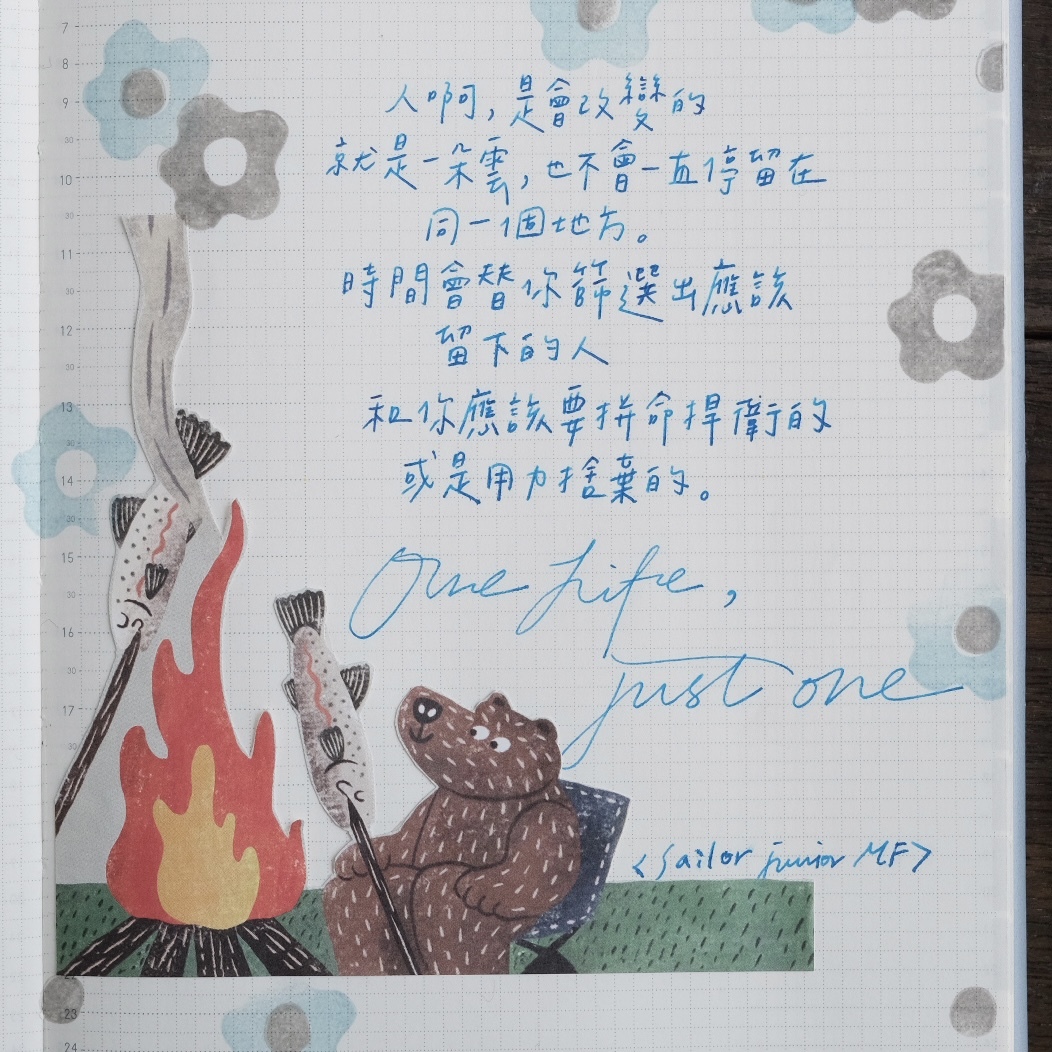 人啊,是會改變的
就是一朵雲,也不會一直停留在
同一個地方。
時間會替你篩選出應該
留下的人
和你應該要拼命捍衛的
或是用力捨棄的。
One Life,
just one
<Sailor junior MF>
7
8
9
30
10
30
11
30
12
30
13
30
14
30
15
30
16
30
17
30
23
24